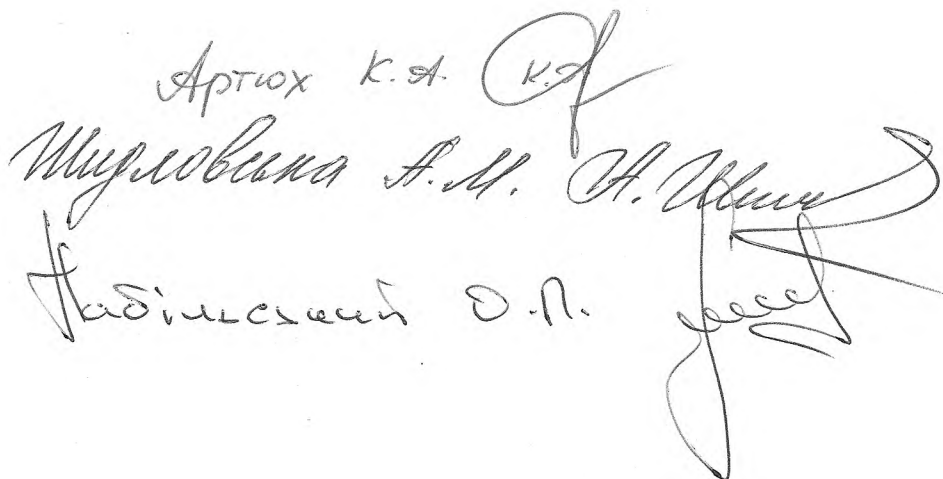 Артюх К.А. К.А
Шидловська А.М.
Набільський О.П.